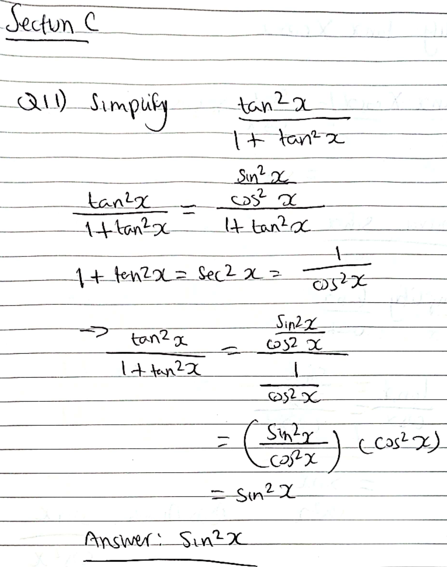 Section C
Q11) Simplify tan²x / 1 + tan²x
tan²x / 1 + tan²x = (sin²x / cos²x) / 1 + tan²x
1 + tan²x = sec²x = 1 / cos²x
→ tan²x / 1 + tan²x = (sin²x / cos²x) / (1 / cos²x)
= (sin²x / cos²x) (cos²x)
= sin²x
Answer: sin²x